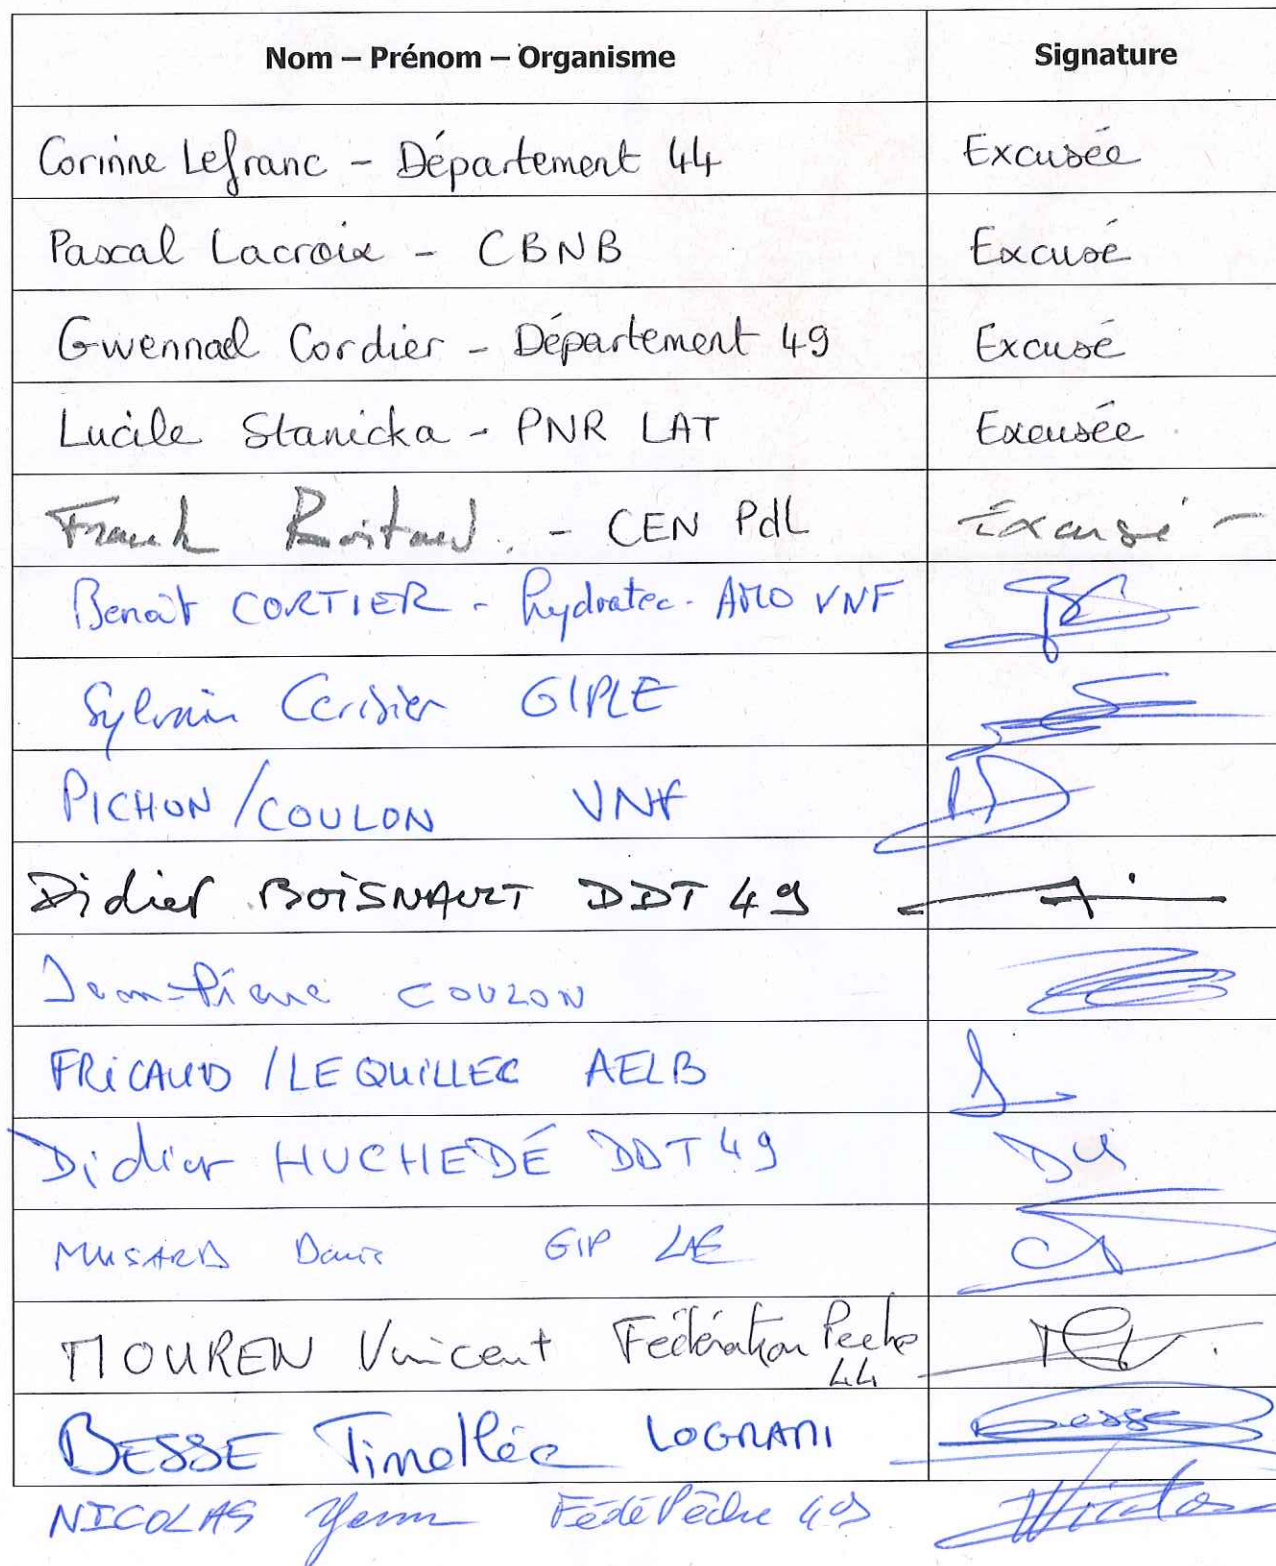 Nom – Prénom – Organisme Signature
Corinne Lefranc - Département 44 Excusée
Pascal Lacroix - CBNB Excusé
Gwennael Cordier - Département 49 Excusé
Lucile Stanicka - PNR LAT Excusée
Franck - CEN PdL Excusé
Benoît CORTIER - hydratec - AMO VNF
Sylvain Cerisier GIPLE
PICHON / COULON VNF
Didier BOISNAULT DDT 49
Jean-Pierre COULON
FRICAUD / LE QUILLEC AELB
Didier HUCHEDÉ DDT 49 DH
MUSARD GIP LE
MOUREN Vincent Fédération Peche
44
BESSE Timothée LOGRAMI Besse
NICOLAS Yann Fédé Pêche 49 Nicolas